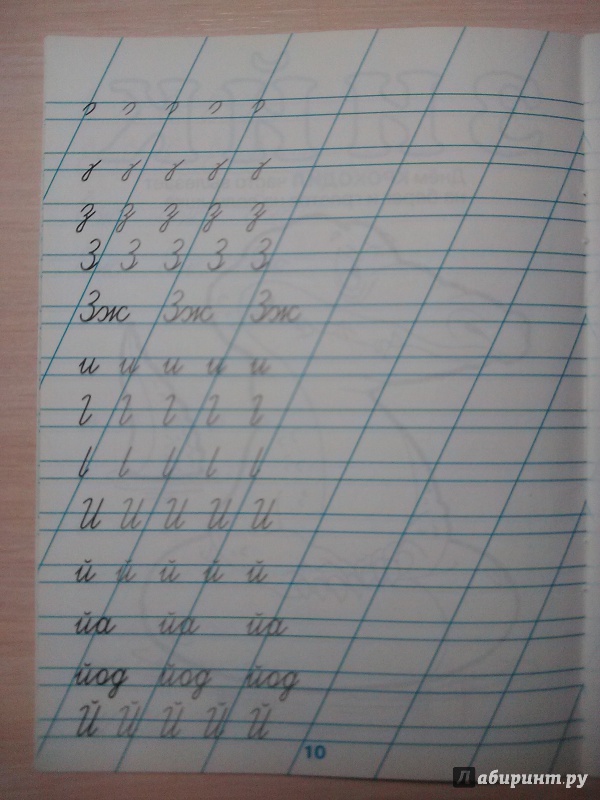 з з з з з
З З З З З
Зж Зж Зж
и и и и и
И И И И И
й й й й й
йа йа йа
йод йод йод
Й Й Й Й Й
10
Лабиринт.ру